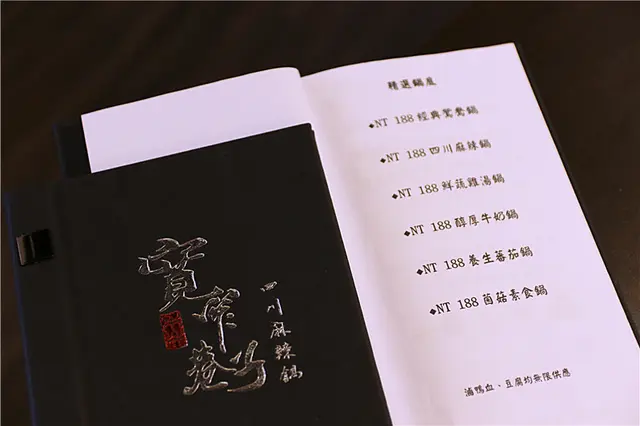 精選鍋底
◆NT 188 經典鴛鴦鍋
◆NT 188 四川麻辣鍋
◆NT 188 鮮蔬雞湯鍋
◆NT 188 醇厚牛奶鍋
◆NT 188 養生蕃茄鍋
◆NT 188 菌菇素食鍋
滷鴨血、豆腐均無限供應
寬窄巷子
四川麻辣鍋